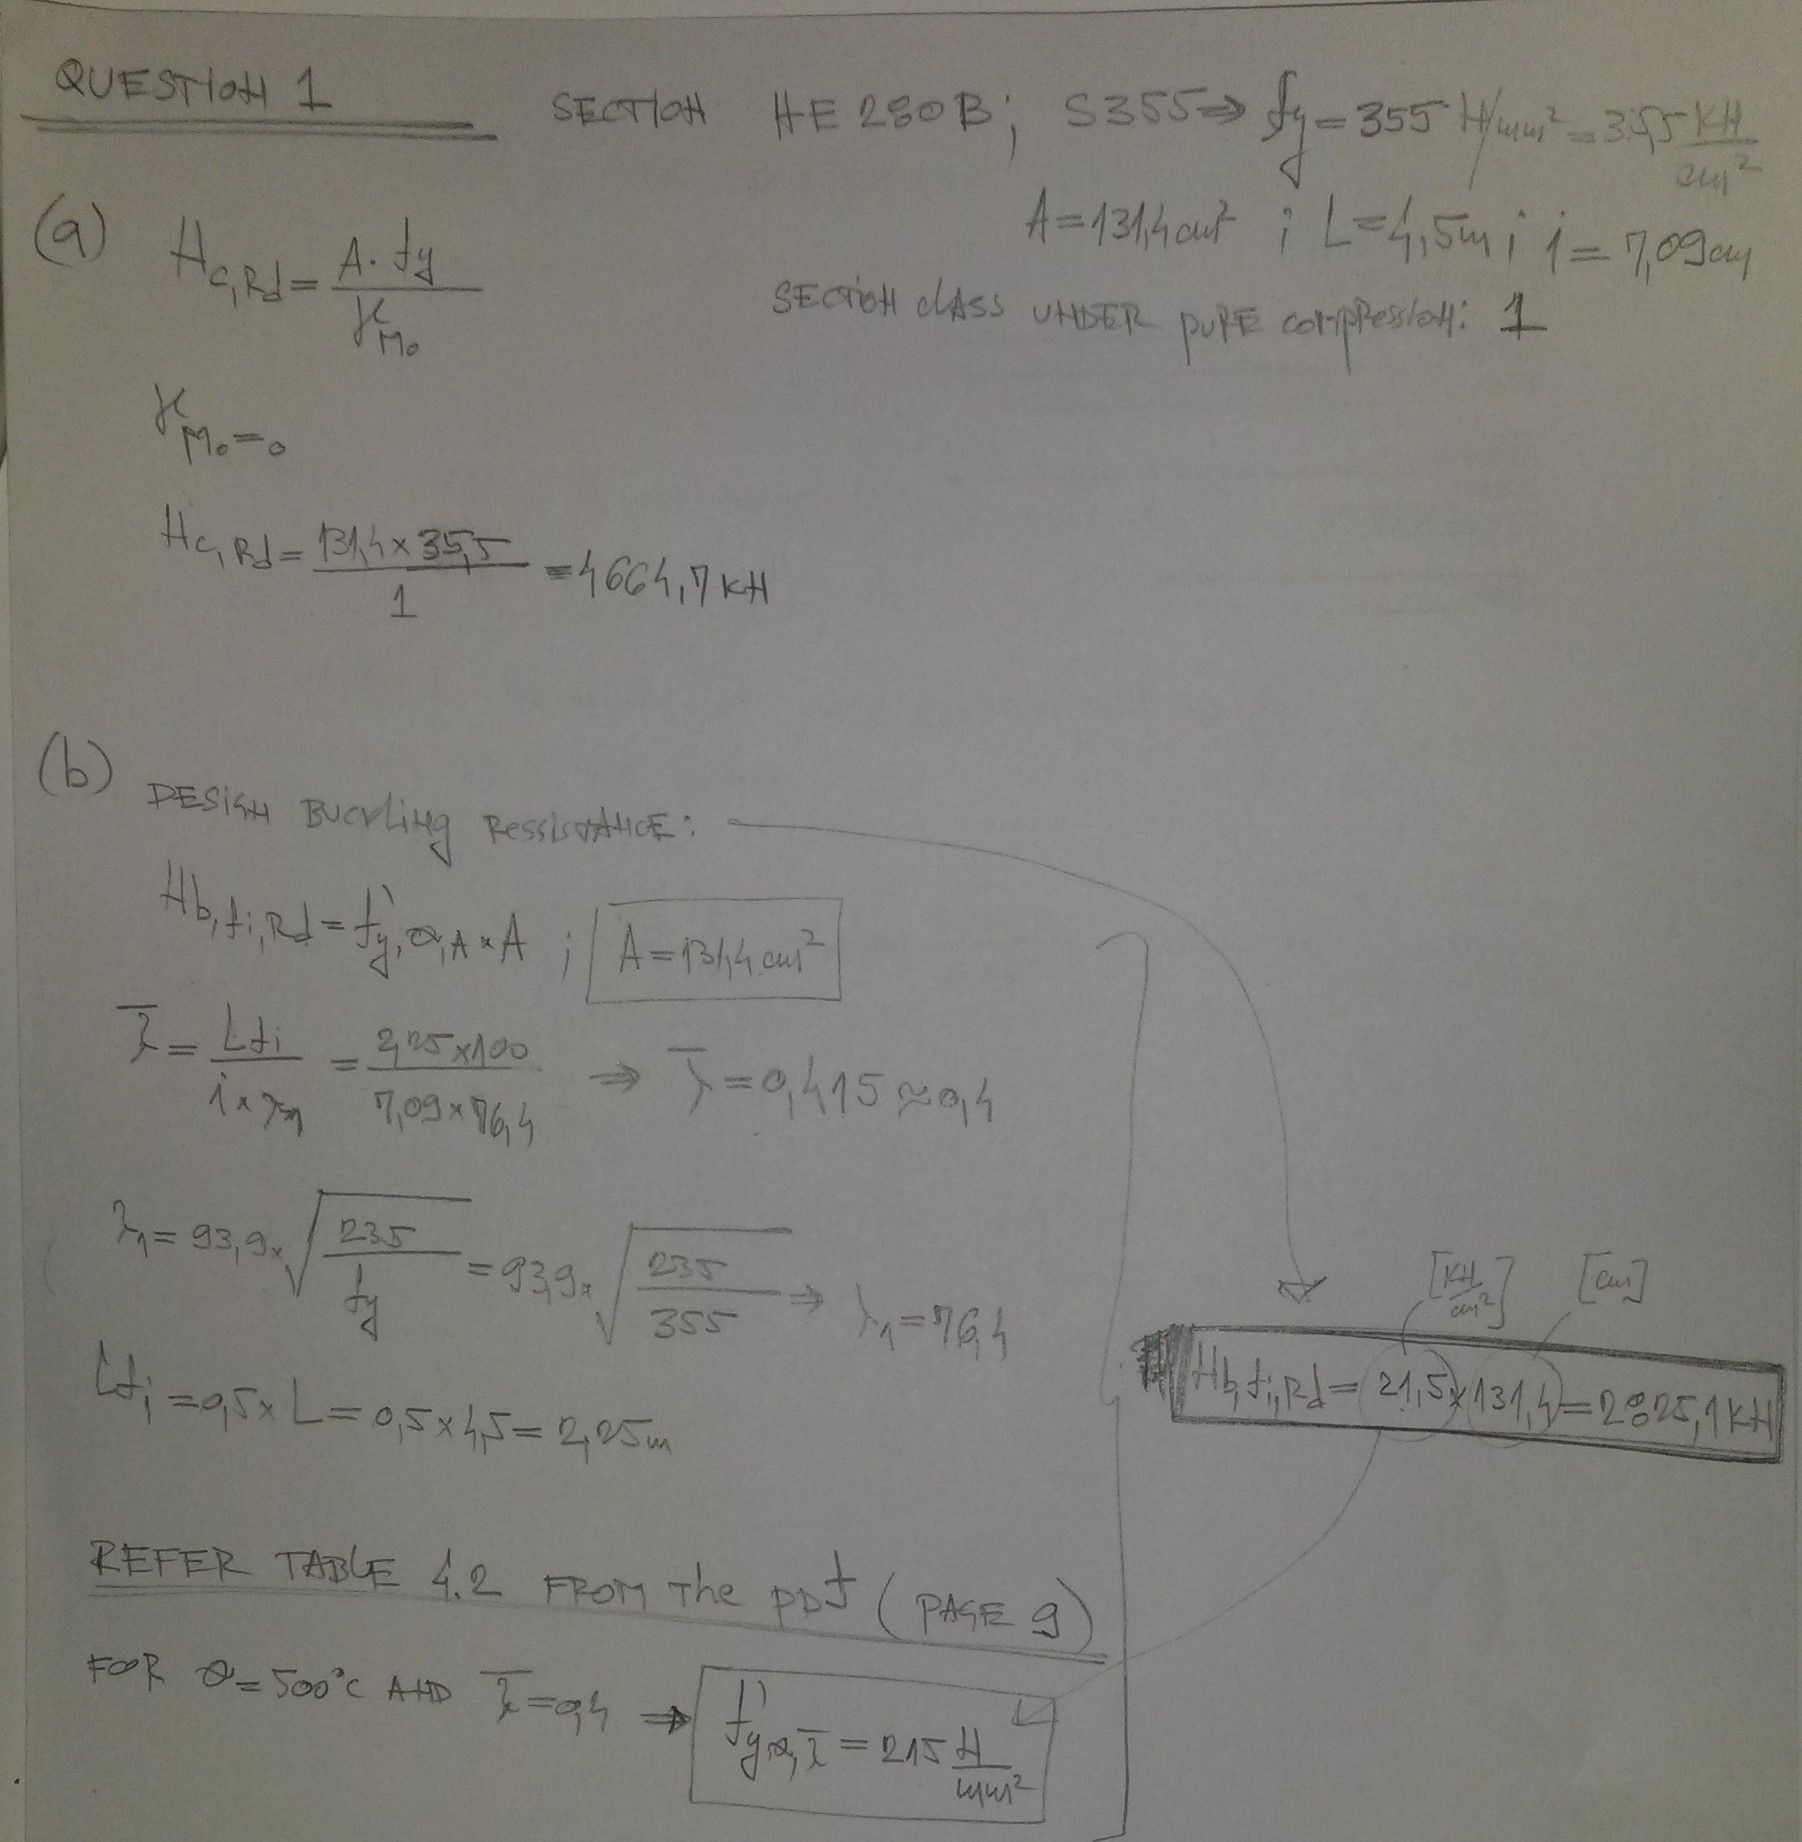 QUESTION 1
SECTION HE 280B; S355 ⇒ fy = 355 N/mm² = 35,5 KN/cm²
A = 131,4 cm² ; L = 4,5m ; i = 7,09cm
SECTION CLASS UNDER PURE COMPRESSION: 1
(a) Nc,Rd = A · fy / γM0
γM0 = 0
Nc,Rd = 131,4 × 35,5 / 1 = 4664,7 KN
(b) DESIGN BUCKLING RESSISTANCE:
Nb,fi,Rd = f'y,θ,λ × A ; A = 131,4 cm²
λ̄ = Lfi / i × λ1 = 2,25 × 100 / 7,09 × 76,4 ⇒ λ̄ = 0,415 ≈ 0,4
λ1 = 93,9 × √(235 / fy) = 93,9 × √(235 / 355) ⇒ λ1 = 76,4
Lfi = 0,5 × L = 0,5 × 4,5 = 2,25m
[KN/cm²] [cm]
Nb,fi,Rd = 21,5 × 131,4 = 2825,1 KN
REFER TABLE 4.2 FROM The PDf (PAGE 9)
FOOR θ = 500°C AND λ̄ = 0,4 ⇒ f'y,θ,λ̄ = 215 N/mm²